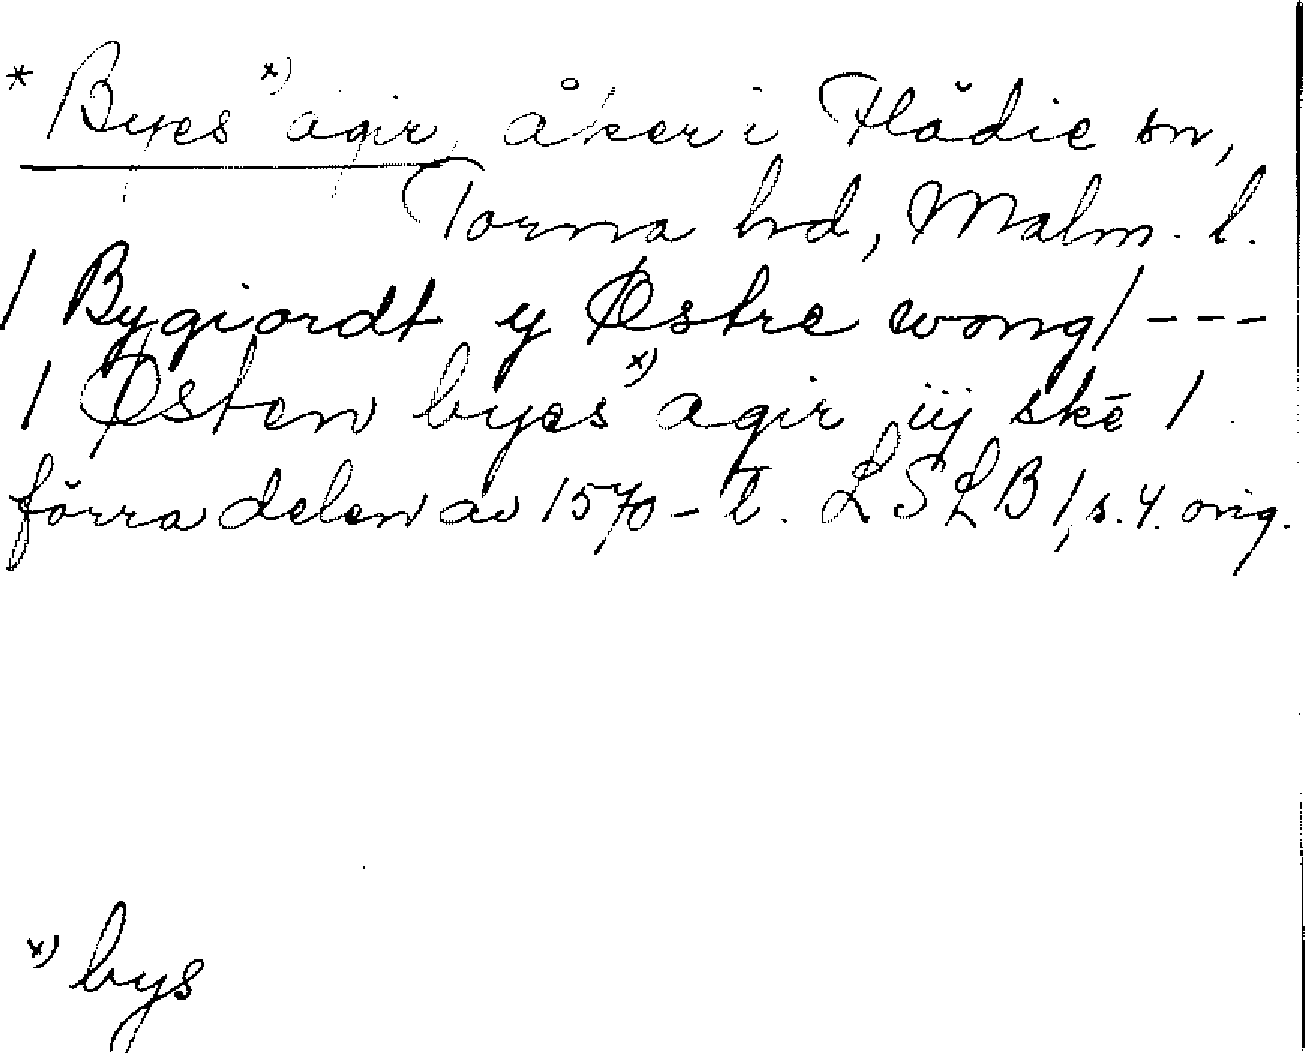 * Byes x) agir, åker i Flädie sn,
Torna hd, Malm. l.
/ Bygiordt y Østre wong / ---
/ Østen byes x) agir iij skē /
förra delen av 1570-t. LSLB 1, s. 4. orig.
x) bys